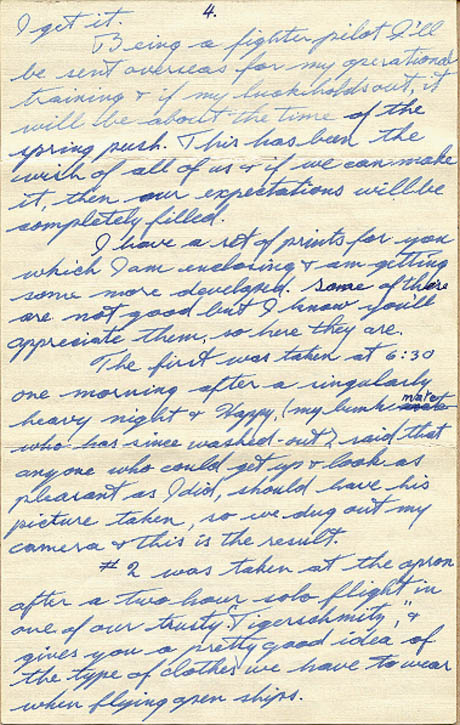 4.
I get it.
Being a fighter pilot I'll
be sent overseas for my operational
training & if my luck holds out, it
will be about the time of the
spring push. This has been the
wish of all of us & if we can make
it, then our expectations will be
completely filled.
I have a set of prints for you
which I am enclosing & am getting
some more developed. Some of these
are not good but I know you'll
appreciate them, so here they are.
The first was taken at 6:30
one morning after a singularly
heavy night & Happy, (my bunk mate
who has since washed-out) said that
anyone who could get up & look as
pleasant as I did, should have his
picture taken, so we dug out my
camera & this is the result.
#2 was taken at the apron
after a two hour solo flight in
one of our trusty "Tigerschmitz", &
gives you a pretty good idea of
the type of clothes we have to wear
when flying open ships.